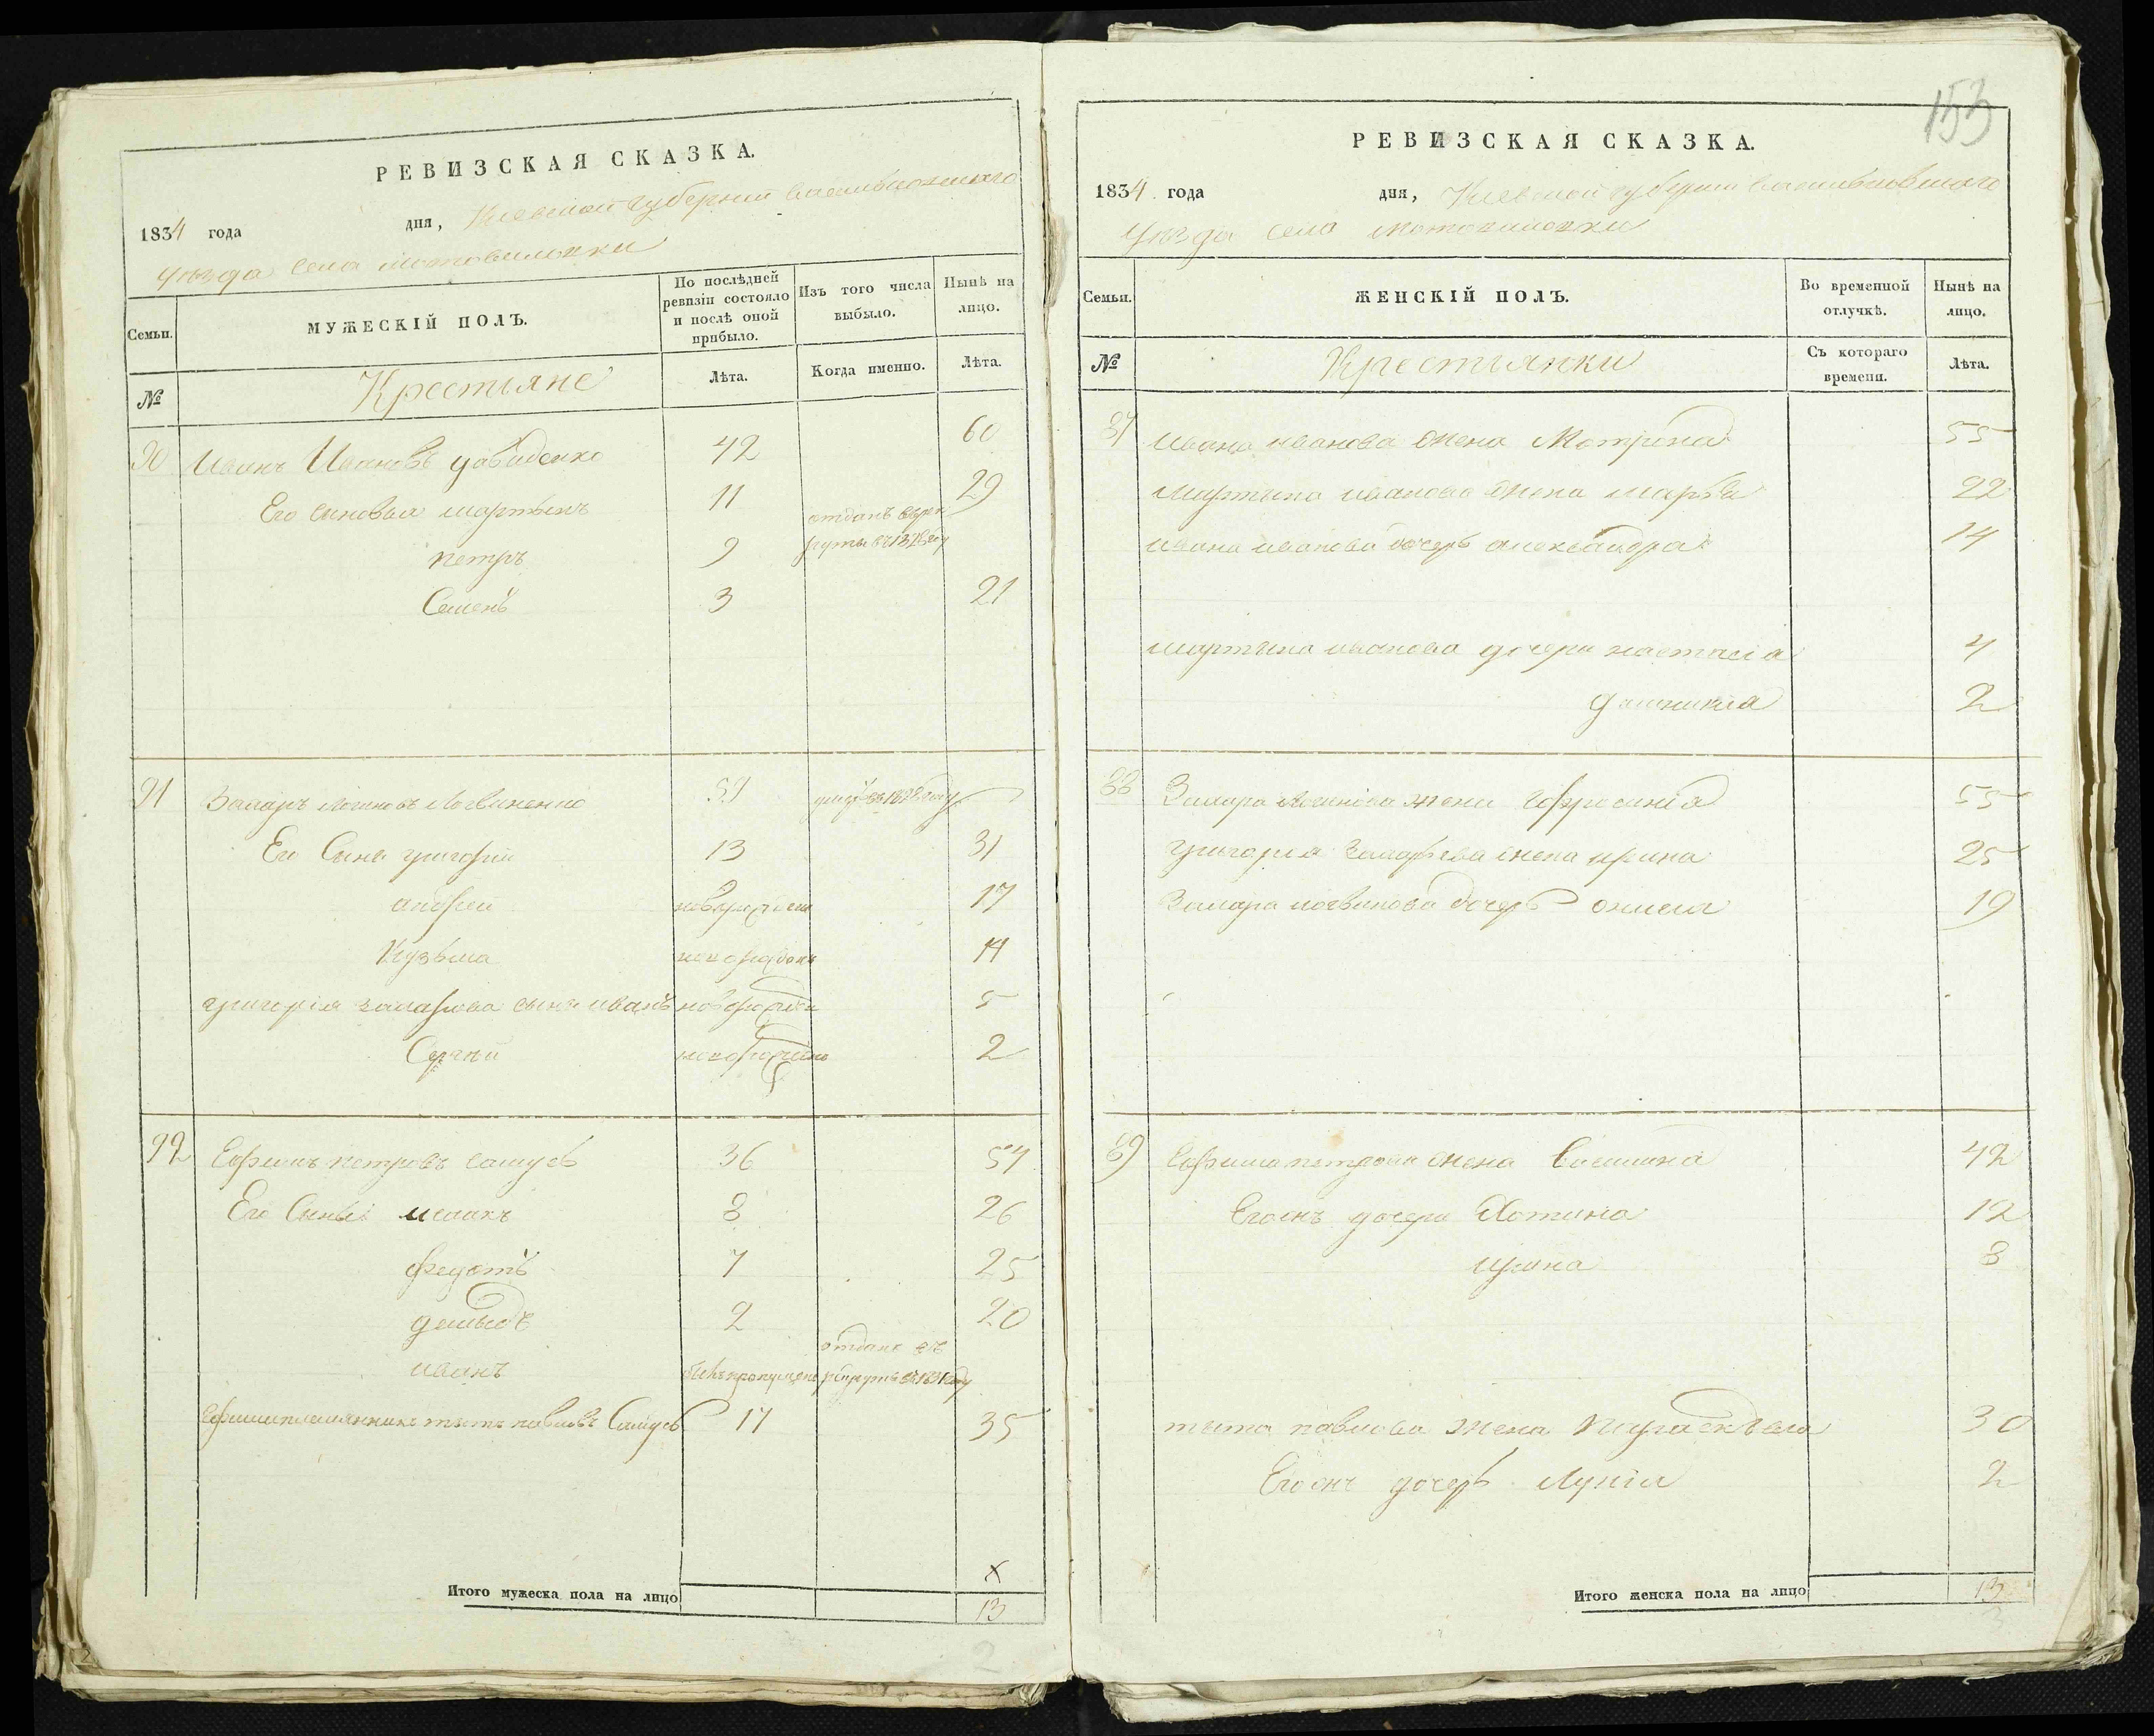 РЕВИЗСКАЯ СКАЗКА.
1834 года дня, Киевской губернии васильковскаго
уѣзда села мотовиловки
Семьи.
МУЖЕСКІЙ ПОЛЪ.
По послѣдней ревизіи состояло и послѣ оной прибыло.
Изъ того числа выбыло.
Нынѣ на лицо.
№
Крестьяне
Лѣта.
Когда именно.
Лѣта.
90 Иванъ Ивановъ давиденко 42 60
Его сыновья мартынъ 11 29
петръ 9 отданъ въ рек
руты въ 1828 году
Семенъ 3 21
91 Захаръ логиновъ логвиненко 59 умер въ 1828 году
Его Сыны григорій 13 31
андрей новорожден 17
Кузьма новорожденъ 14
григорія захарова сынъ иванъ новорожден 5
Сергѣй новорожденъ 2
92 Ефимъ петровъ сацуевъ 36 54
Его Сыны исаакъ 8 26
федотъ 7 25
демидъ 2 20
иванъ былъ пропущенъ отданъ въ
рекруты въ 1831 году
Ефима племянникъ титъ павловъ 17 35
Итого мужеска пола на лицо
х
13
153
РЕВИЗСКАЯ СКАЗКА.
1834 года дня, Киевской губернии васильковскаго
уѣзда села мотовиловки
Семьи.
ЖЕНСКІЙ ПОЛЪ.
Во временной отлучкѣ.
Нынѣ на лицо.
№
Крестьянки
Съ котораго времени.
Лѣта.
87 Ивана иванова жена Мотрона 55
мартина иванова жена марфа 22
ивана иванова дочерь александра 14
мартина иванова дочери настасія 4
2
88 Захара логинова жена ефросинія 55
григорія захарьева жена ирина 25
Захара логвинова дочерь 19
89 Ефима петрова жена Василина 42
Егожъ дочери Хотина 12
ирина 8
тита павлова жена Параскѣвія 30
Егожъ дочерь Лукія 2
Итого женска пола на лицо
13